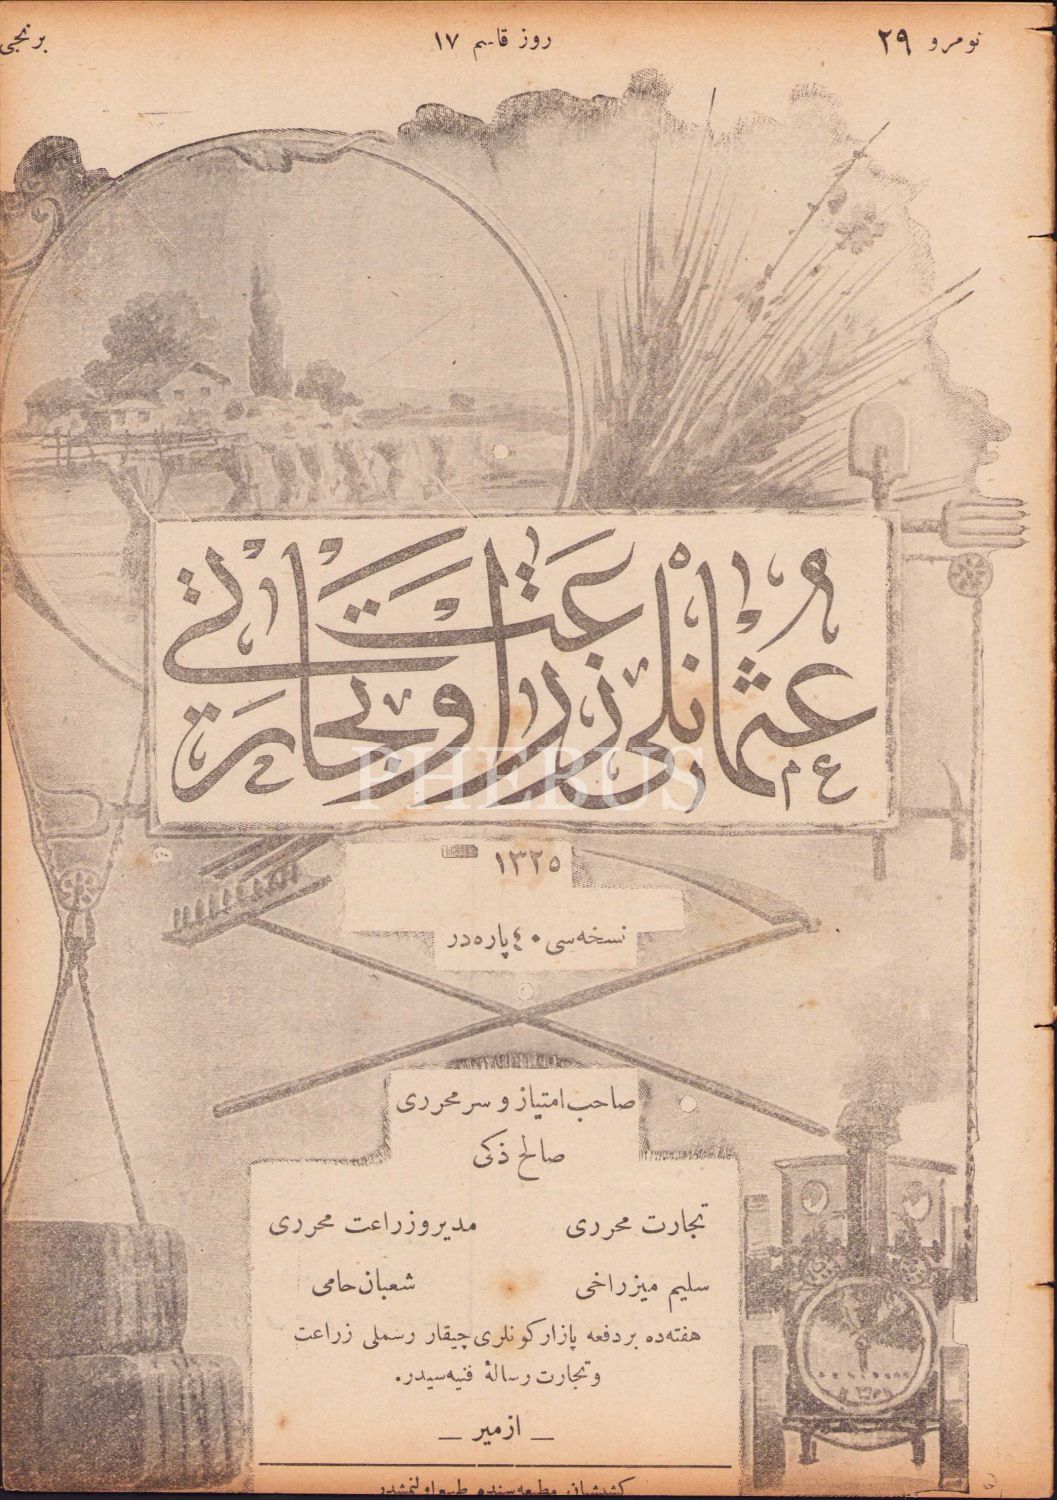 نومرو ٢٩ روز قاسم ١٧ برنجی
عثمانلی زراعت و تجارت غزته‌سی
PHEBUS
١٣٢٥
نسخه‌سی ٤٠ پاره‌در
صاحب امتیاز و سر محرری
صالح ذکی
تجارت محرری مدیر و زراعت محرری
سلیم میزراخی شعبان حامی
هفته‌ده بر دفعه پازار کونلری چیقار رسملی زراعت
و تجارت رسالهٔ فنیه‌سیدر.
— ازمیر —
کشیشیان مطبعه‌سنده طبع اولنمشدر